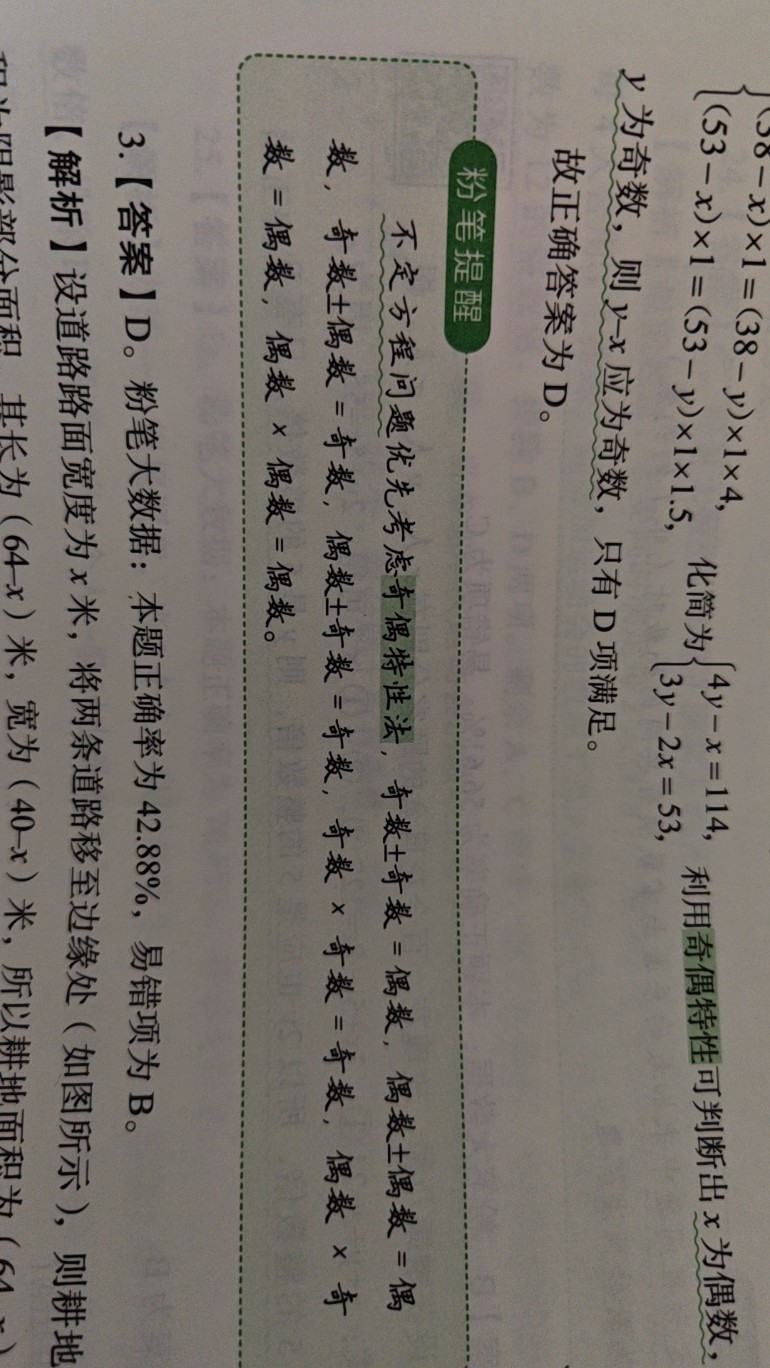 (38－x)×1＝(38－y)×1×4,
(53－x)×1＝(53－y)×1×1.5, 化简为 4y－x＝114, 3y－2x＝53, 利用奇偶特性可判断出 x 为偶数,
y 为奇数，则 y–x 应为奇数，只有 D 项满足。
故正确答案为 D。
粉笔提醒
不定方程问题优先考虑奇偶特性法，奇数±奇数＝偶数，偶数±偶数＝偶
数，奇数±偶数＝奇数，偶数±奇数＝奇数，奇数×奇数＝奇数，偶数×奇
数＝偶数，偶数×偶数＝偶数。
3.【答案】D。粉笔大数据：本题正确率为 42.88%，易错项为 B。
【解析】设道路路面宽度为 x 米，将两条道路移至边缘处（如图所示），则耕地
积为阴影部分面积，其长为（64–x）米，宽为（40–x）米，所以耕地面积为（64–x）